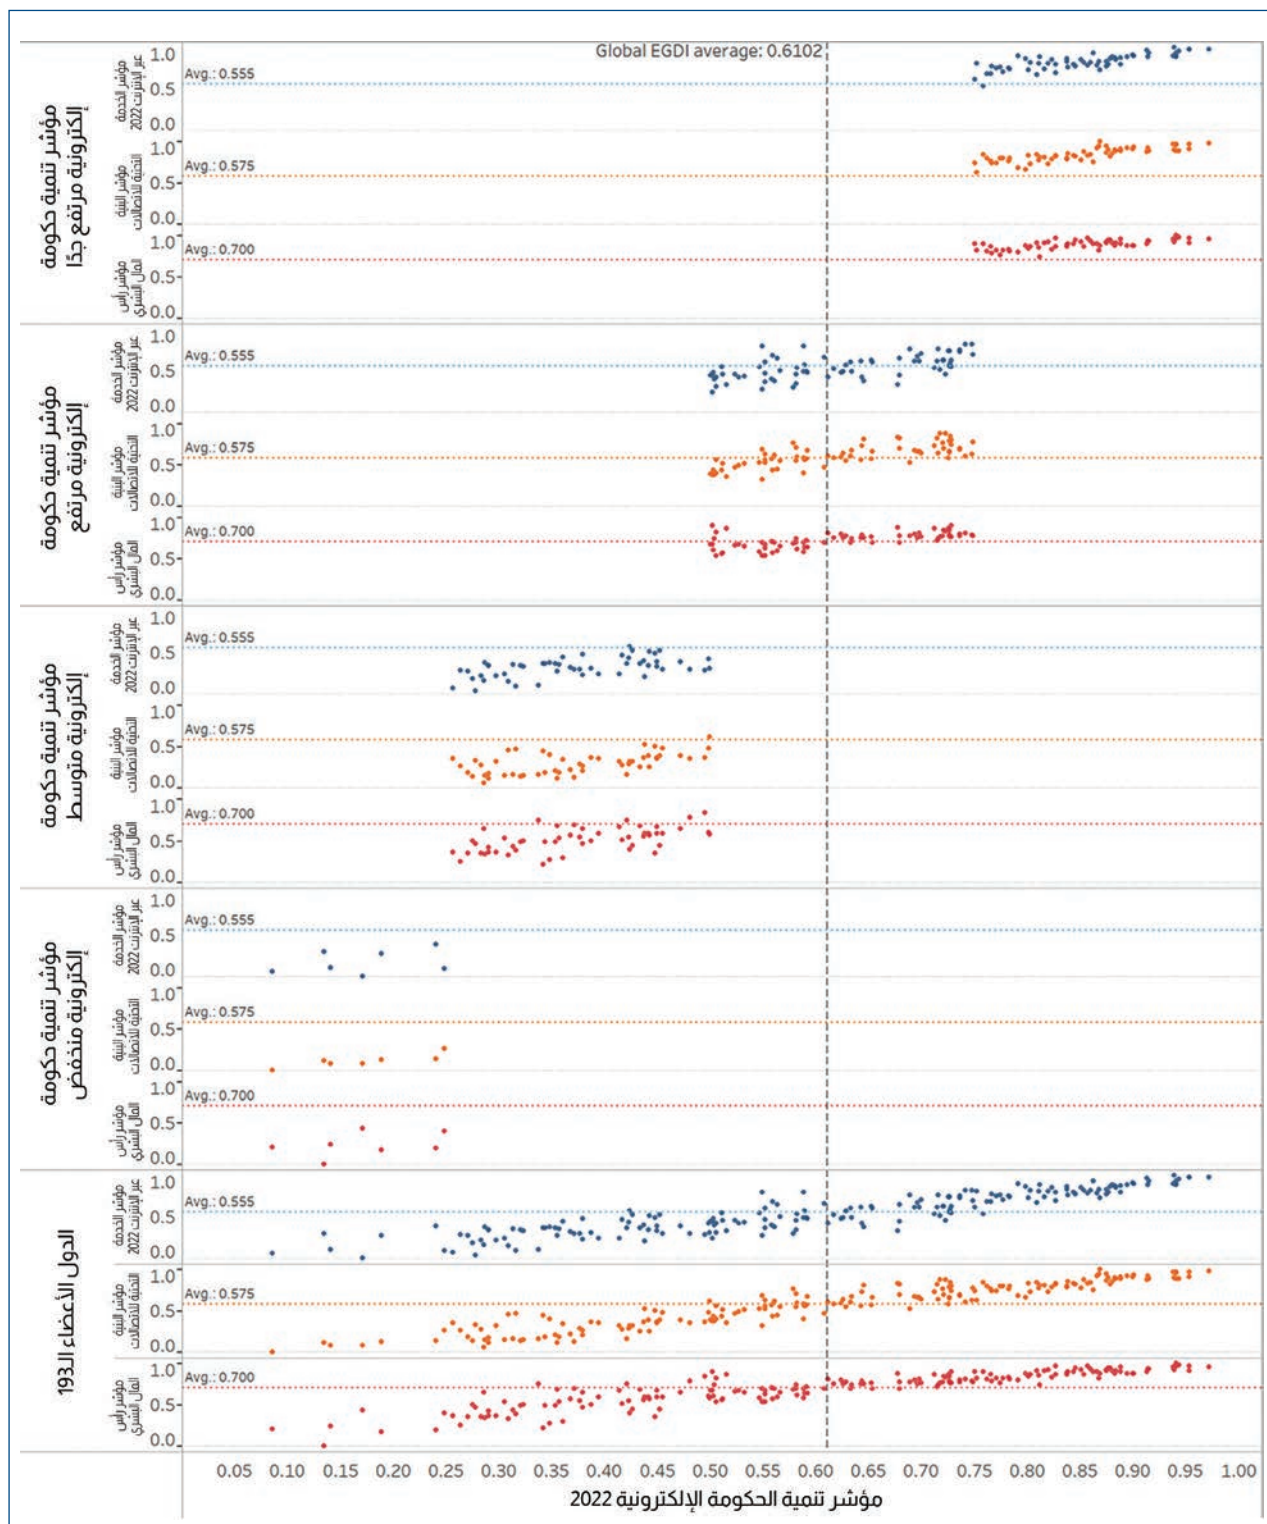 Global EGDI average: 0.6102
مؤشر تنمية حكومة
إلكترونية مرتفع جدًا
مؤشر الخدمة
عبر الإنترنت 2022
1.0
0.5
0.0
Avg.: 0.555
مؤشر البنية
التحتية للاتصالات
1.0
0.5
0.0
Avg.: 0.575
مؤشر رأس
المال البشري
1.0
0.5
0.0
Avg.: 0.700
مؤشر تنمية حكومة
إلكترونية مرتفع
مؤشر الخدمة
عبر الإنترنت 2022
1.0
0.5
0.0
Avg.: 0.555
مؤشر البنية
التحتية للاتصالات
1.0
0.5
0.0
Avg.: 0.575
مؤشر رأس
المال البشري
1.0
0.5
0.0
Avg.: 0.700
مؤشر تنمية حكومة
إلكترونية متوسط
مؤشر الخدمة
عبر الإنترنت 2022
1.0
0.5
0.0
Avg.: 0.555
مؤشر البنية
التحتية للاتصالات
1.0
0.5
0.0
Avg.: 0.575
مؤشر رأس
المال البشري
1.0
0.5
0.0
Avg.: 0.700
مؤشر تنمية حكومة
إلكترونية منخفض
مؤشر الخدمة
عبر الإنترنت 2022
1.0
0.5
0.0
Avg.: 0.555
مؤشر البنية
التحتية للاتصالات
1.0
0.5
0.0
Avg.: 0.575
مؤشر رأس
المال البشري
1.0
0.5
0.0
Avg.: 0.700
الدول الأعضاء الـ193
مؤشر الخدمة
عبر الإنترنت 2022
1.0
0.5
0.0
Avg.: 0.555
مؤشر البنية
التحتية للاتصالات
1.0
0.5
0.0
Avg.: 0.575
مؤشر رأس
المال البشري
1.0
0.5
0.0
Avg.: 0.700
0.05 0.10 0.15 0.20 0.25 0.30 0.35 0.40 0.45 0.50 0.55 0.60 0.65 0.70 0.75 0.80 0.85 0.90 0.95 1.00
مؤشر تنمية الحكومة الإلكترونية 2022